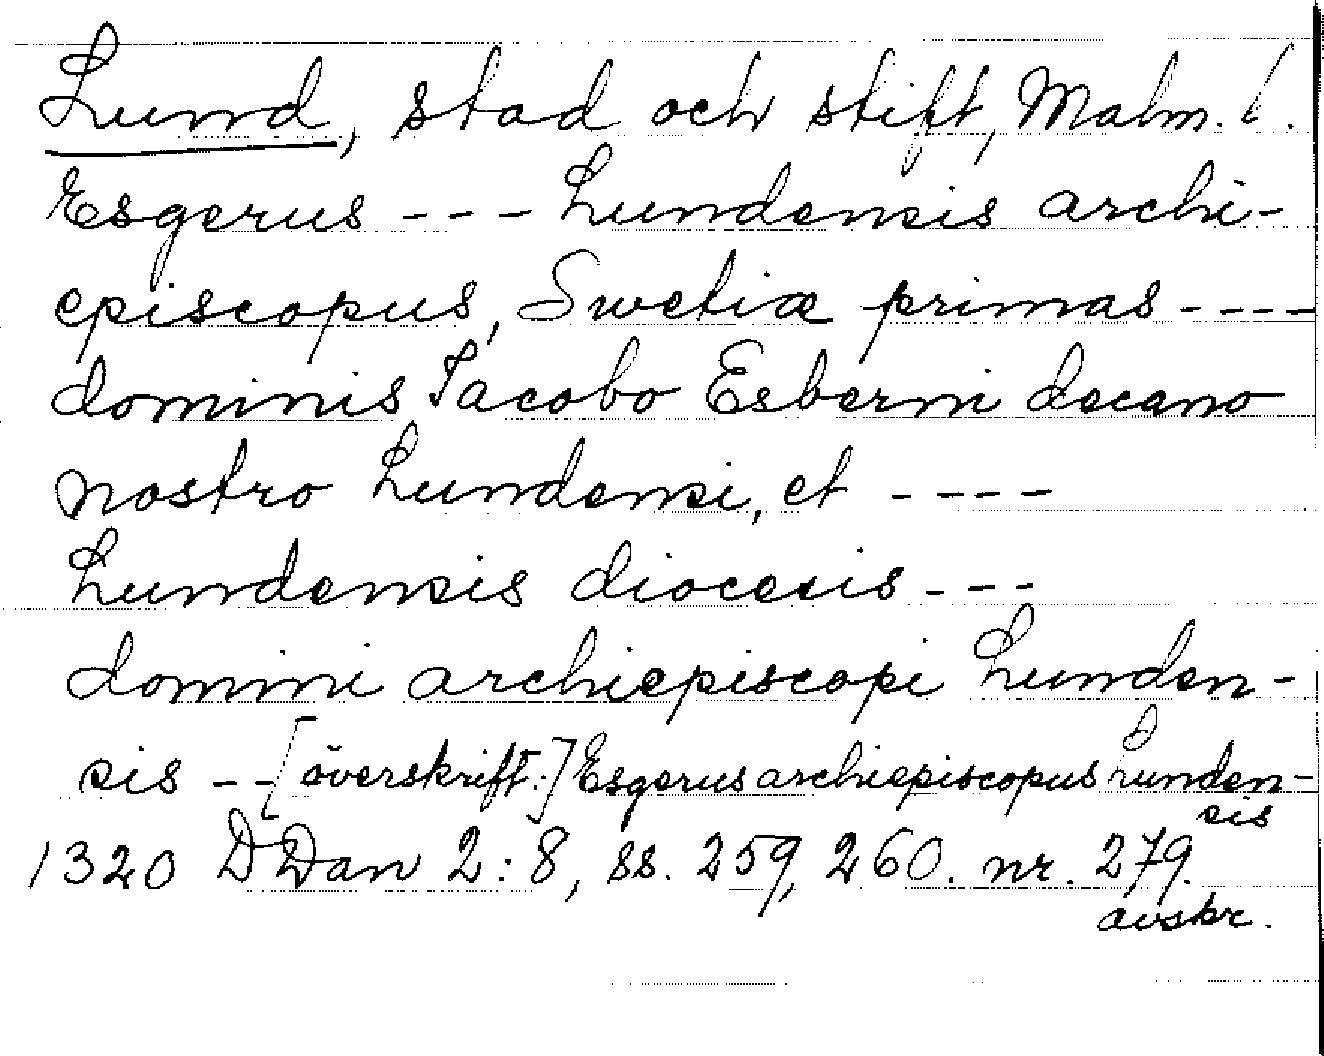 Lund, stad och stift, Malm. l.
Esgerus --- Lundensis archi-
episcopus, Swetiæ primas ----
dominis Iacobo Esberni decano
nostro Lundensi, et ----
Lundensis diocesis ---
domini archiepiscopi Lunden-
sis -- [överskrift:] Esgerus archiepiscopus Lunden-
sis
1320 DDan 2:8, ss. 259, 260. nr. 279.
avskr.